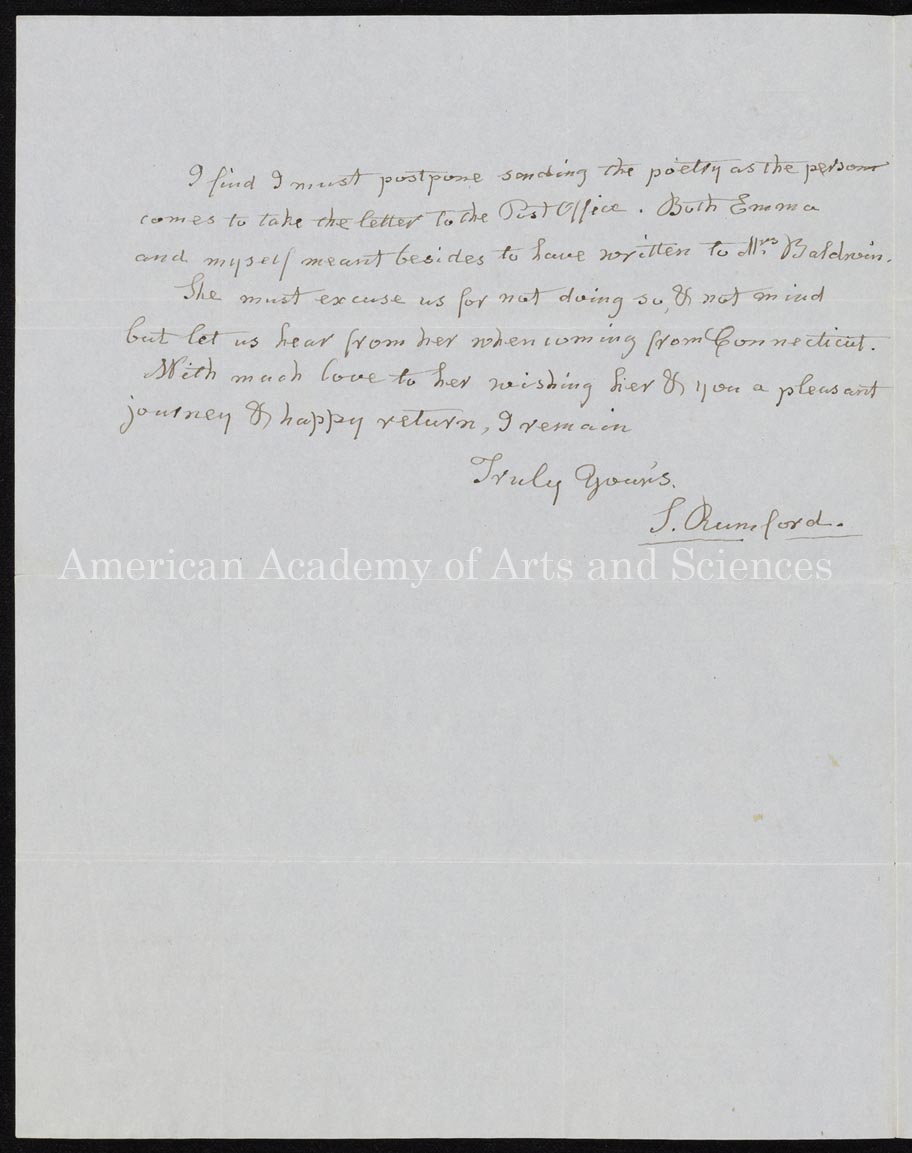 I find I must postpone sending the poetry as the person
comes to take the letter to the Post Office. Both Emma
and myself meant besides to have written to Mrs. Baldwin.
She must excuse us for not doing so, & not mind
but let us hear from her when coming from Connecticut.
With much love to her wishing her & you a pleasant
journey & happy return, I remain
Truly Your's.
S. Rumford.
American Academy of Arts and Sciences